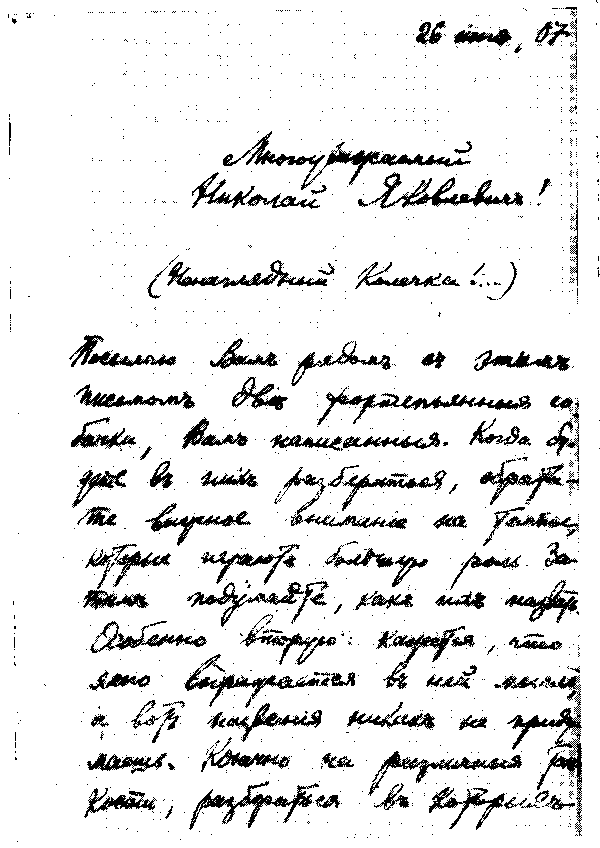 26 июня, 07
Многоуважаемый
Николай Яковлевичъ!
(Ненаглядный Колечка!...)
Посылаю Вамъ рядомъ съ этимъ
письмомъ двѣ фортепьянныя со-
бачки, Вамъ написанныя. Когда бу-
дете въ нихъ разбераться, обрати-
те внимание на
которые играютъ большую роль. За-
тѣмъ подумайте, какъ ихъ назвать.
Особенно вторую: кажется, что
ясно выражается въ ней мысль,
а вотъ названия никакъ не приду-
маешь. Конечно на различныя тон-
кости, разбераться въ которыхъ